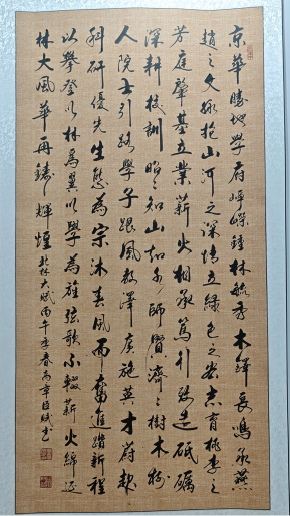 京华胜地学府峥嵘钟林毓秀木铎长鸣承燕
赵之文脉抱山河之深情立绿色之宏志育桃李之
芳庭肇基立业薪火相承笃行致远砥砺
深耕校训昭昭知山知水师贤济济树木树
人院士引路学子跟风教泽广施英才蔚起
科研优先生态为宗沐春风而奋进踏新程
以攀登以林为翼以学为旌弦歌不辍薪火绵延
林大风华再铸辉煌北林大赋丙午年春高章臣赋